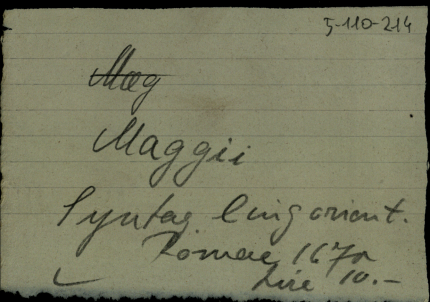 5-110-214
Mag
Maggii
Syntag ling orient.
Romae 1670
Lire 10.-